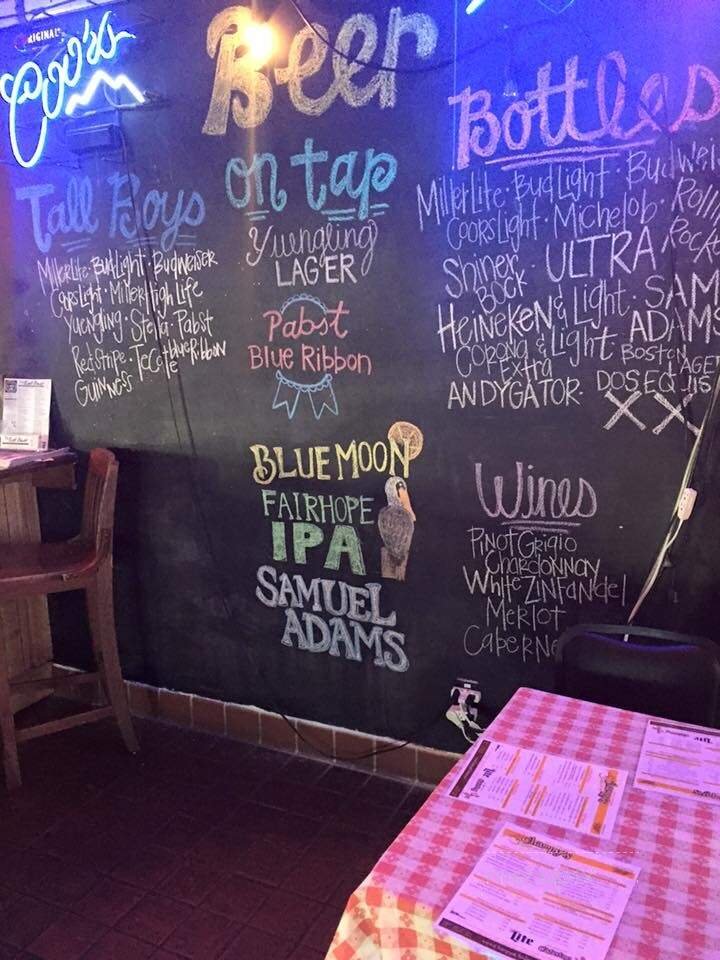 ORIGINAL
Coors
Beer
Tall Boys
Miller Lite · Bud Light · Budweiser
Coors Light · Miller High Life
Yuengling · Stella · Pabst
Red Stripe · Tecate blue Ribbon
GUINNESS
on tap
Yuengling
LAGER
Pabst
BLUE RIBBON
BLUE MOON
FAIRHOPE
IPA
SAMUEL
ADAMS
Bottles
Miller Lite · Bud Light · Budwei
Coors Light · Michelob · Rolli
Shiner BOCK · ULTRA Rock
HEINEKEN & Light · SAM
Corona Extra & Light ADAMS
BOSTON LAGER
ANDYGATOR · DOS EQUIS
XX
Wines
Pinot Grigio
Chardonnay
White Zinfandel
Merlot
Caberne
Lite